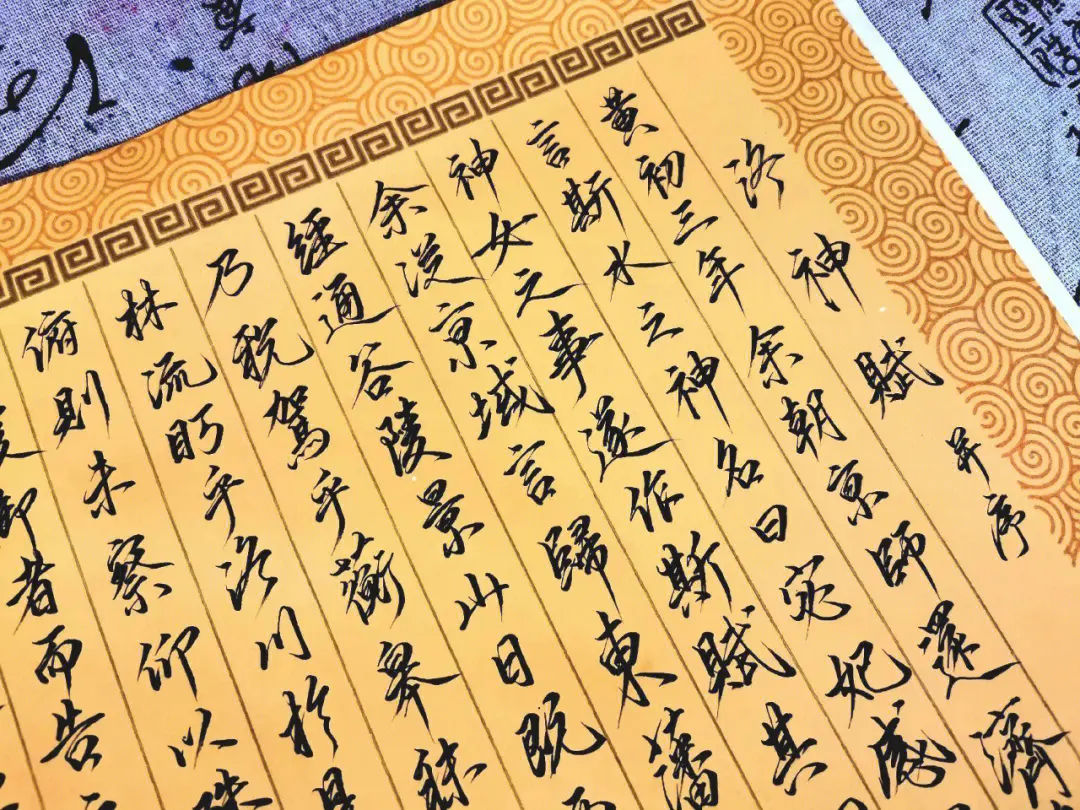 洛神賦 并序
黄初三年余朝京師還濟
言斯水之神名曰宓妃感
神女之事遂作斯賦其
余從京域言歸東藩
經通谷陵景山日既
乃税駕乎蘅皋秣
林流眄乎洛川於是
俯則未察仰以殊
御者而告